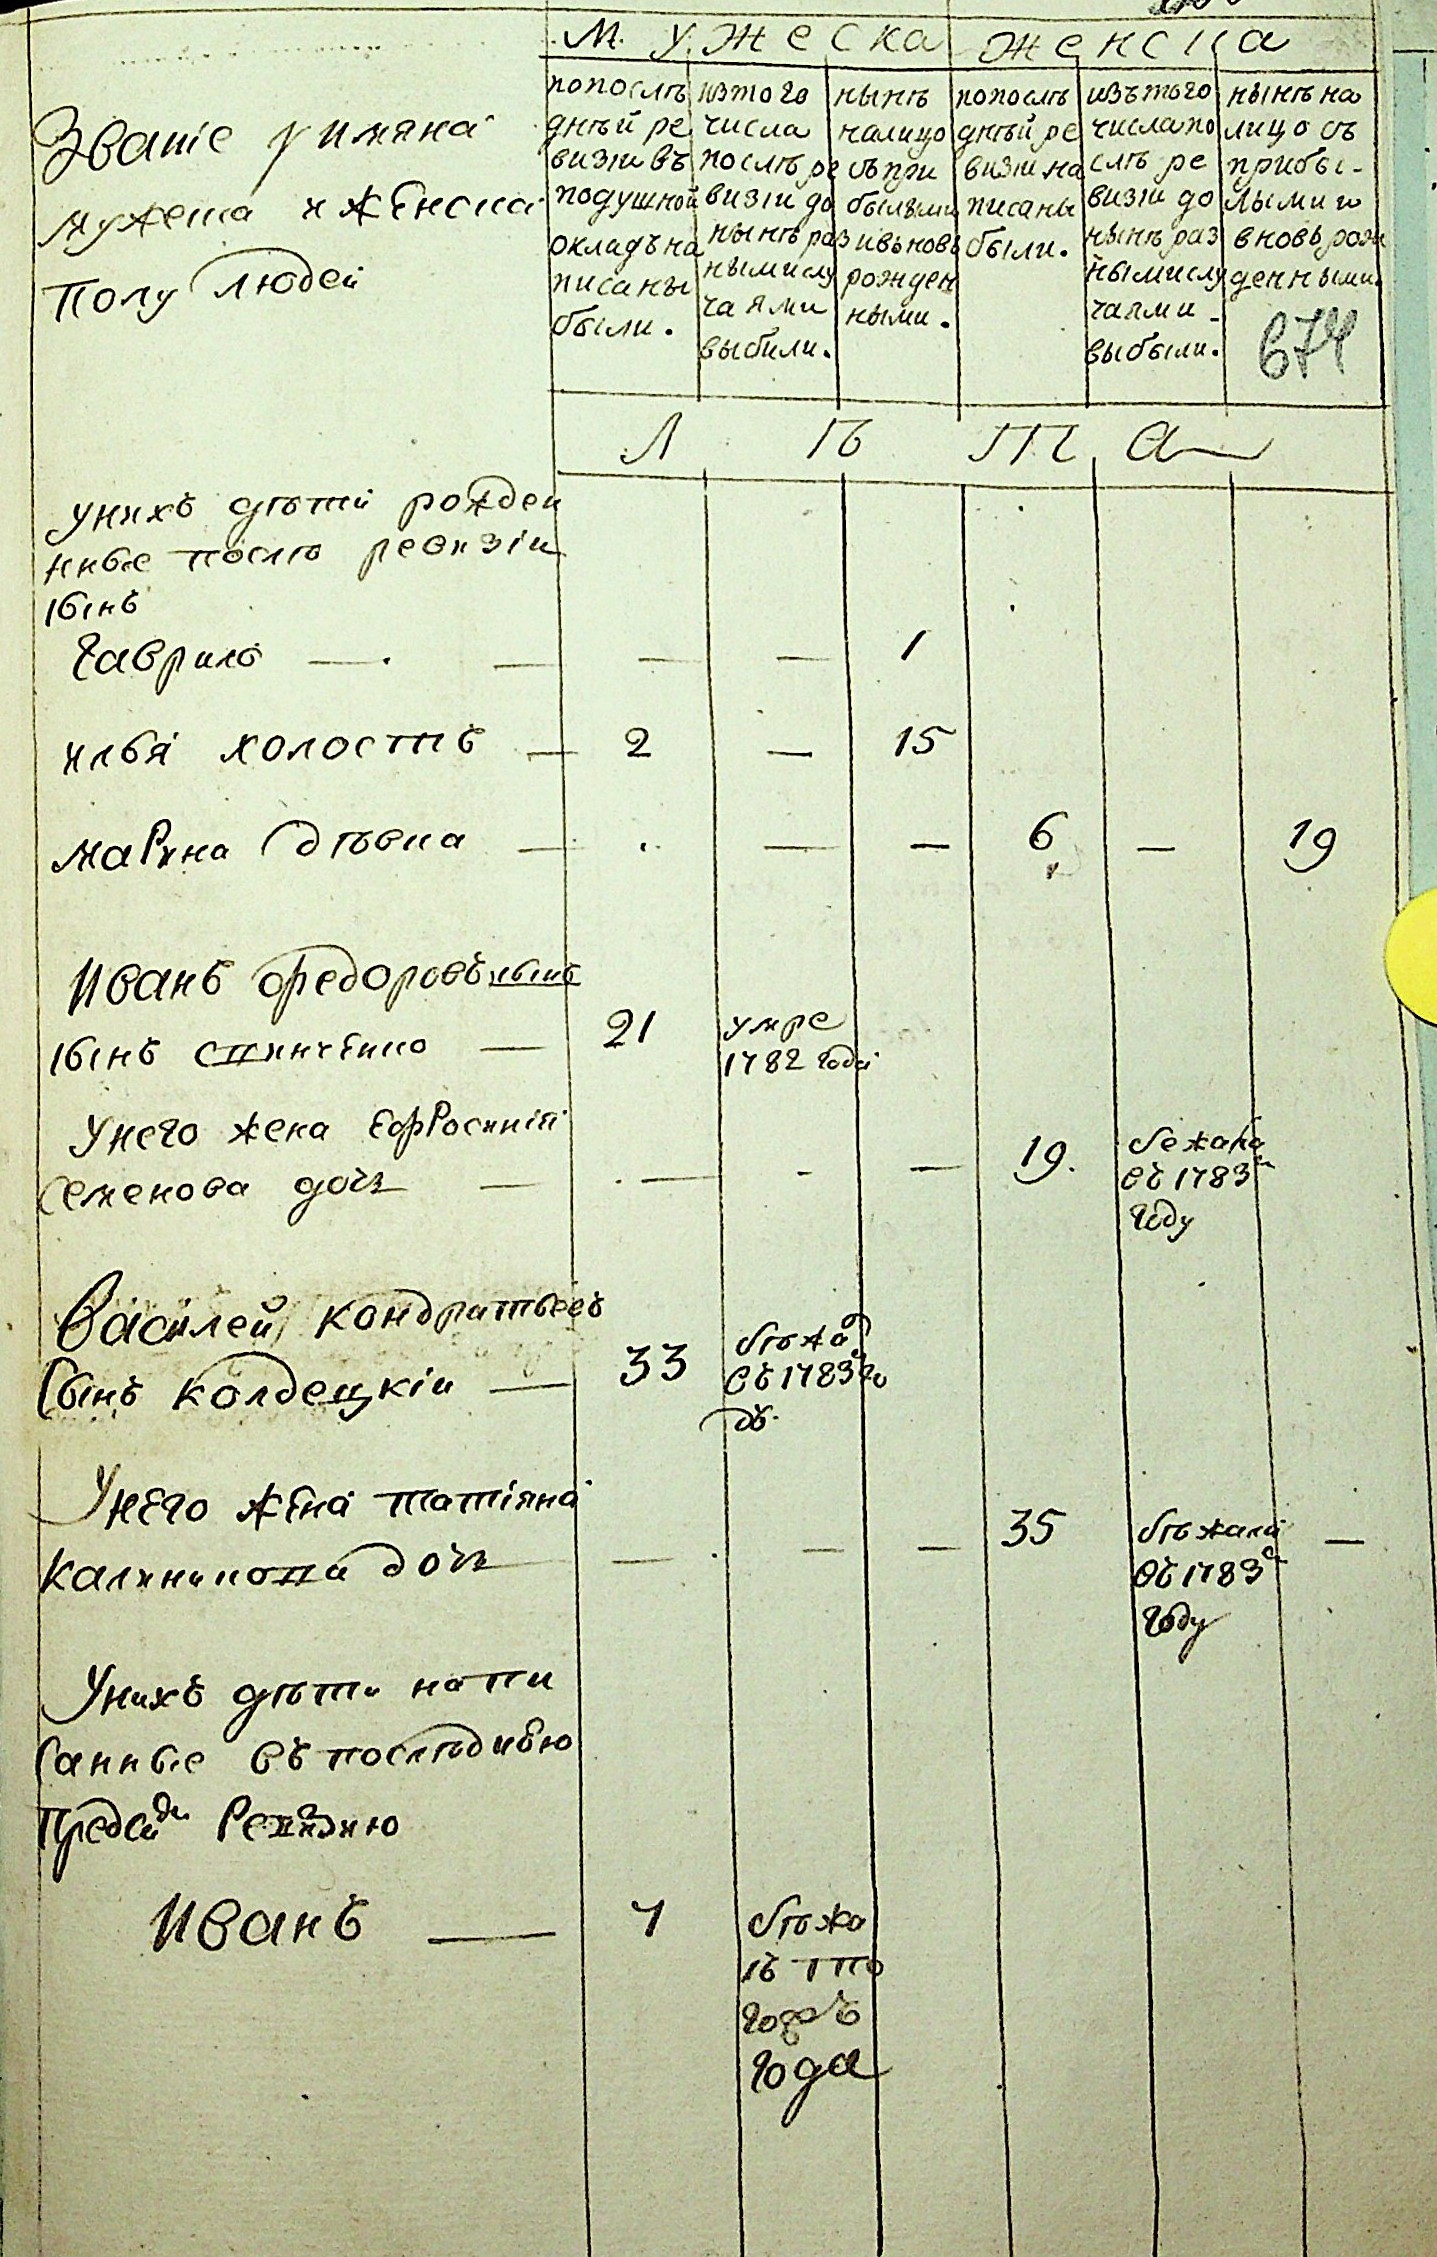 мужеска женска
Званіе и имяна
мужеска и женска
полу людей
попослѣ
дней ре
визіи въ
подушной
окладъ на
писаны
были.
изтого
числа
послѣ ре
визіи до
нынѣ раз
ными слу
чаями
выбыли.
нынѣ
налицо
съ при
былыми
и вновь
рожден
ными.
попослѣ
дней ре
визіи на
писаны
были.
изътого
числа по
слѣ ре
визіи до
нынѣ раз
ными слу
чаями
выбыли.
нынѣ на
лицо съ
прибы-
лыми и
вновь рож
денными.
674
Лѣта
у нихъ дѣти рожден
ные послѣ ревизіи
сынъ
Гаврило — — — — 1
илья холостъ — 2 — 15
марина дѣвка — — — 6 — 19
Иванъ Федоровъ сынъ
сынъ — 21 умре
1782 года
У него жена Ефросинія
Семенова дочь — — - — 19. бежала
въ 1783м
году
Василей Кондратьевъ
сынъ Колдецкій — 33 бѣжал
въ 1783 го
дъ.
У него жена татіяна
калиникова дочь — — — 35 бѣжала —
въ 1783м
году
У нихъ дѣти напи
санные въ последнею
пред сим Ревизию
Иванъ — 4 бѣжа
лъ т то
года